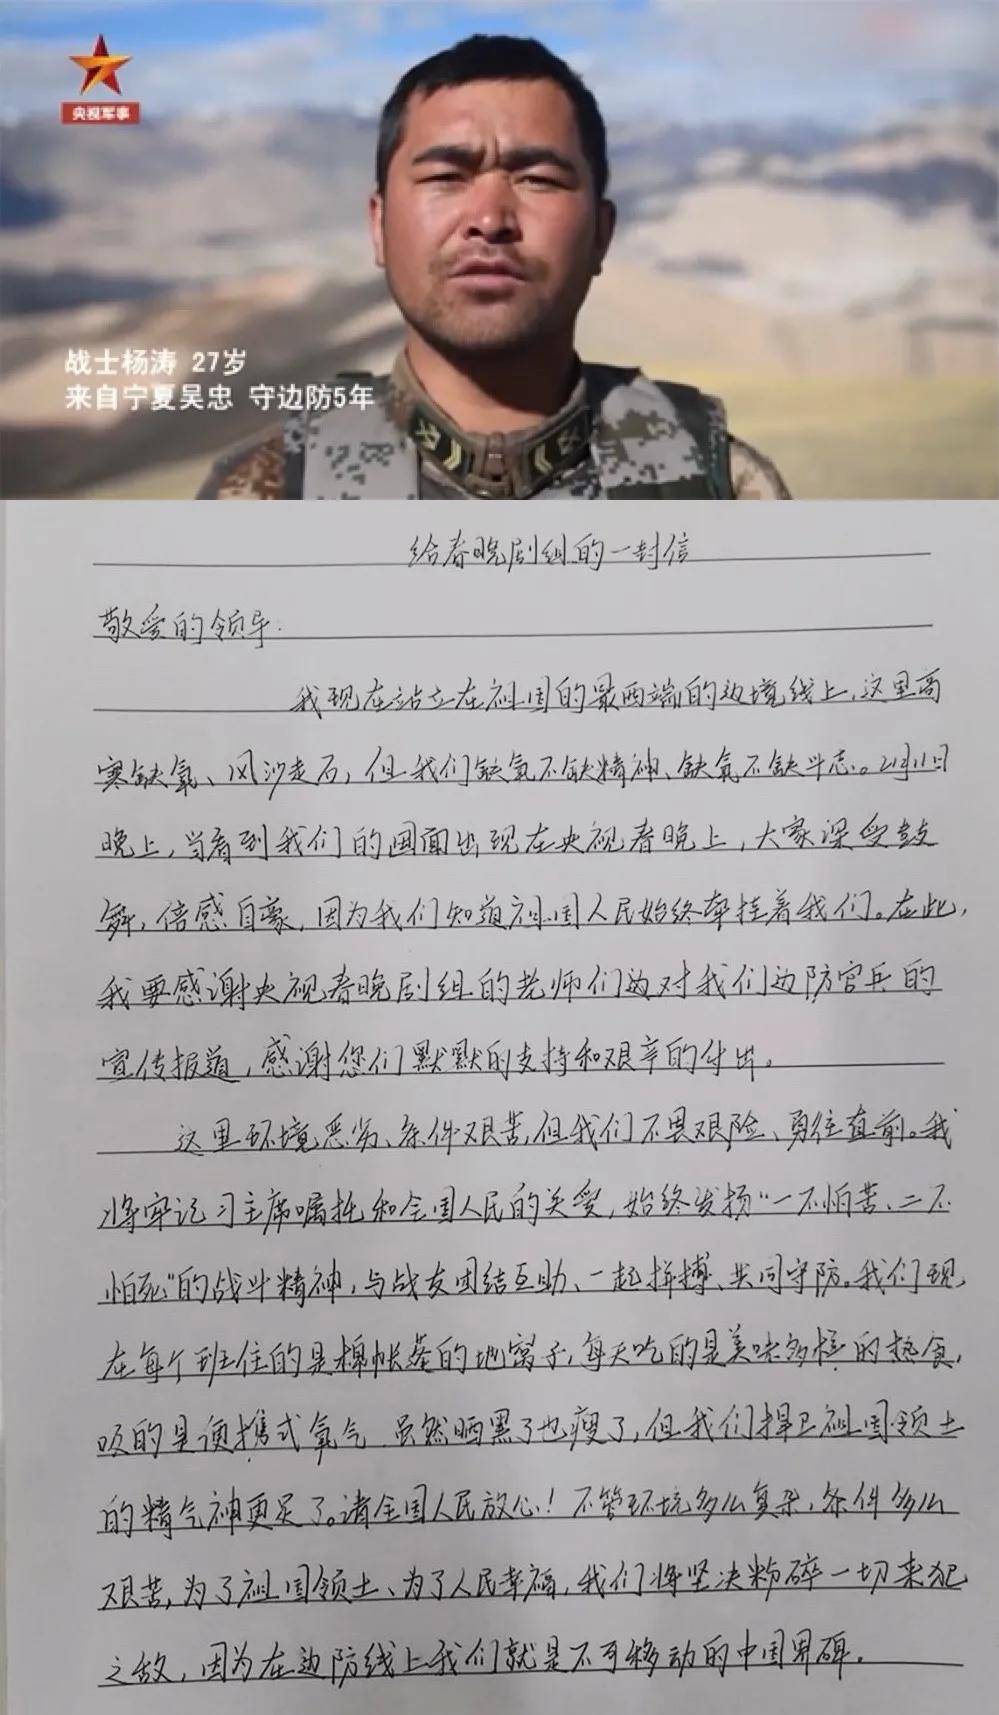 央视军事
战士杨涛 27岁
来自宁夏吴忠 守边防5年
给春晚剧组的一封信
敬爱的领导:
我现在站立在祖国的最西端的边境线上,这里高
寒缺氧、风沙走石,但我们缺氧不缺精神、缺氧不缺斗志。2月11日
晚上,当看到我们的画面出现在央视春晚上,大家深受鼓
舞,倍感自豪,因为我们知道祖国人民始终牵挂着我们。在此,
我要感谢央视春晚剧组的老师们对我们边防官兵的
宣传报道,感谢您们默默的支持和艰辛的付出。
这里环境恶劣、条件艰苦,但我们不畏艰险、勇往直前。我
将牢记习主席嘱托和全国人民的关爱,始终发扬“一不怕苦、二不
怕死”的战斗精神,与战友团结互助、一起拼搏、共同守防。我们现
在每个班住的是棉帐篷的地窝子,每天吃的是美味多样的热食,
吸的是便携式氧气,虽然晒黑了也瘦了,但我们捍卫祖国领土
的精气神更足了。请全国人民放心!不管环境多么复杂,条件多么
艰苦,为了祖国领土、为了人民幸福,我们将坚决粉碎一切来犯
之敌,因为在边防线上我们就是不可移动的中国界碑。